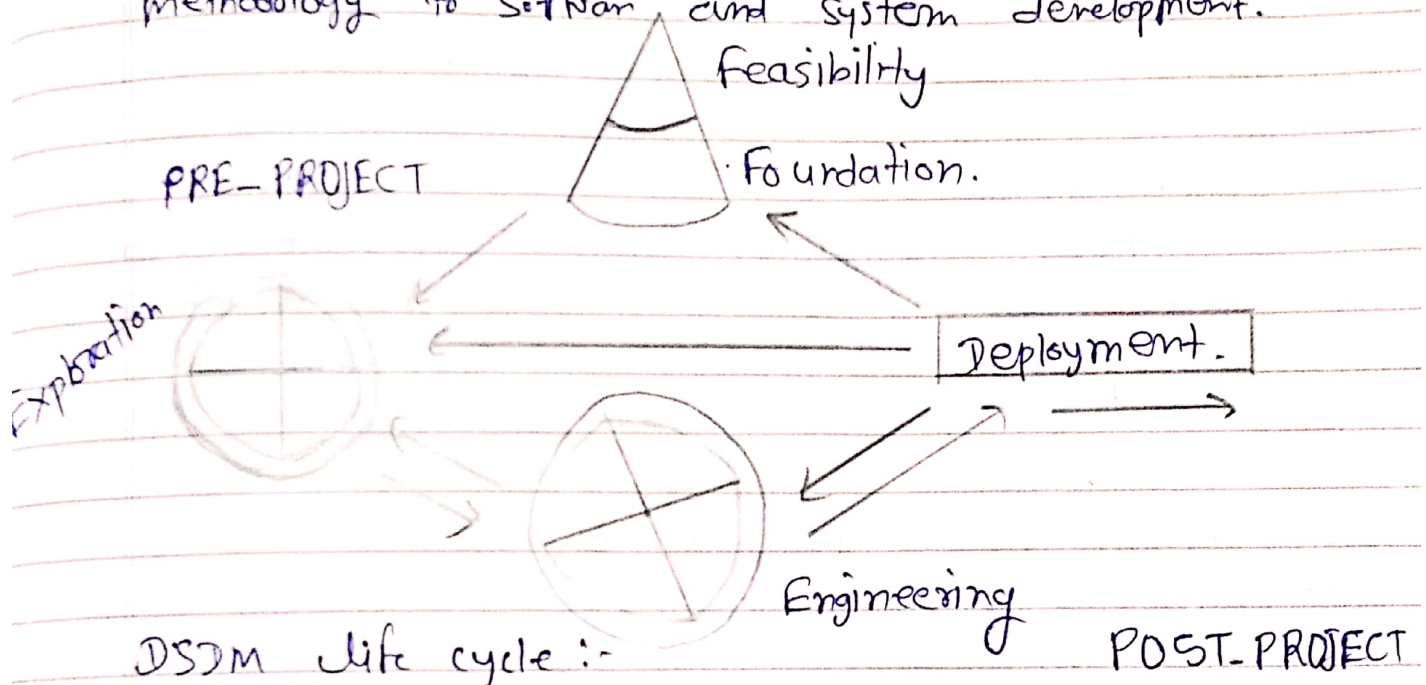 methodology to softwar and system development.
Feasibility
PRE-PROJECT
Foundation.
Exploration
Deployment.
Engineering
DSDM life cycle :-
POST-PROJECT